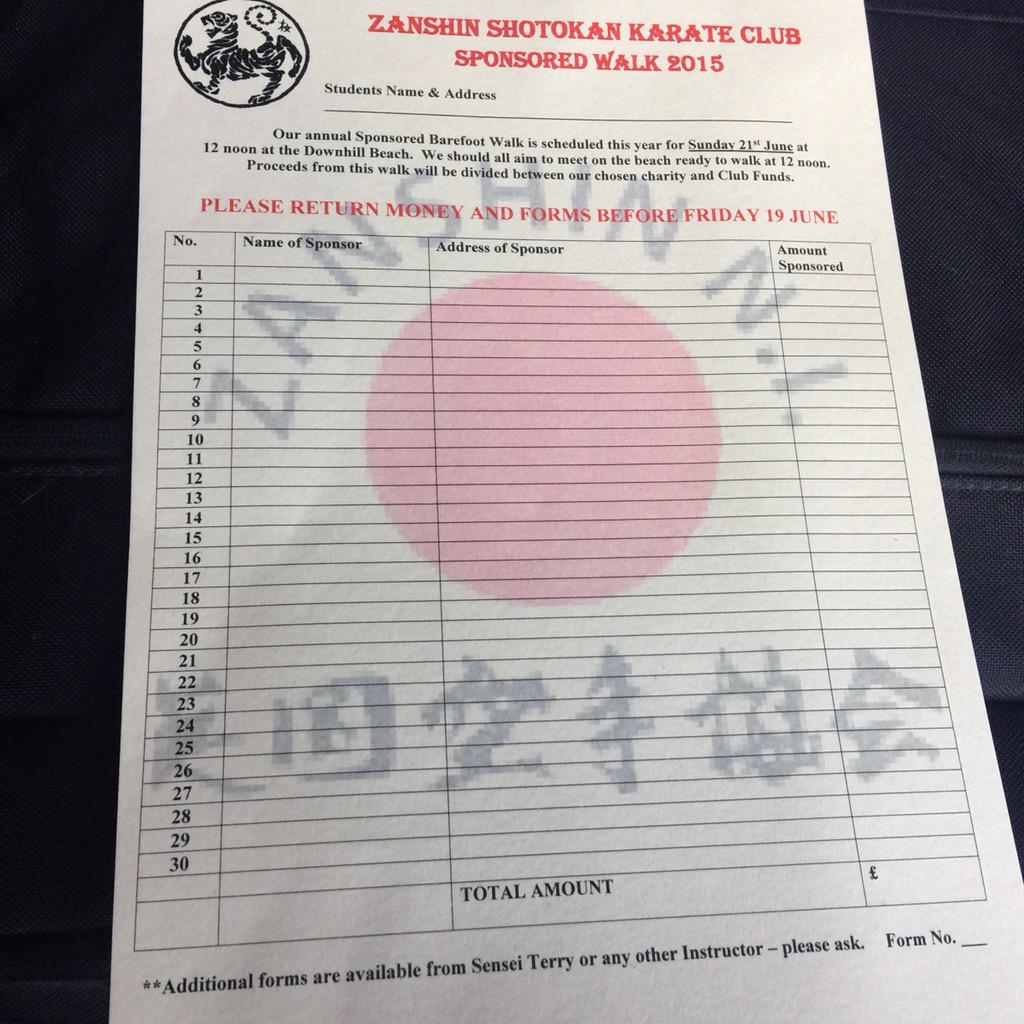 ZANSHIN SHOTOKAN KARATE CLUB
SPONSORED WALK 2015
Students Name & Address
Our annual Sponsored Barefoot Walk is scheduled this year for Sunday 21st June at
12 noon at the Downhill Beach. We should all aim to meet on the beach ready to walk at 12 noon.
Proceeds from this walk will be divided between our chosen charity and Club Funds.
PLEASE RETURN MONEY AND FORMS BEFORE FRIDAY 19 JUNE
ZANSHIN N.I.
No. Name of Sponsor Address of Sponsor Amount Sponsored
1
2
3
4
5
6
7
8
9
10
11
12
13
14
15
16
17
18
19
20
21
22
23
24
25
26
27
28
29
30
空手協会
TOTAL AMOUNT £
**Additional forms are available from Sensei Terry or any other Instructor – please ask. Form No. __